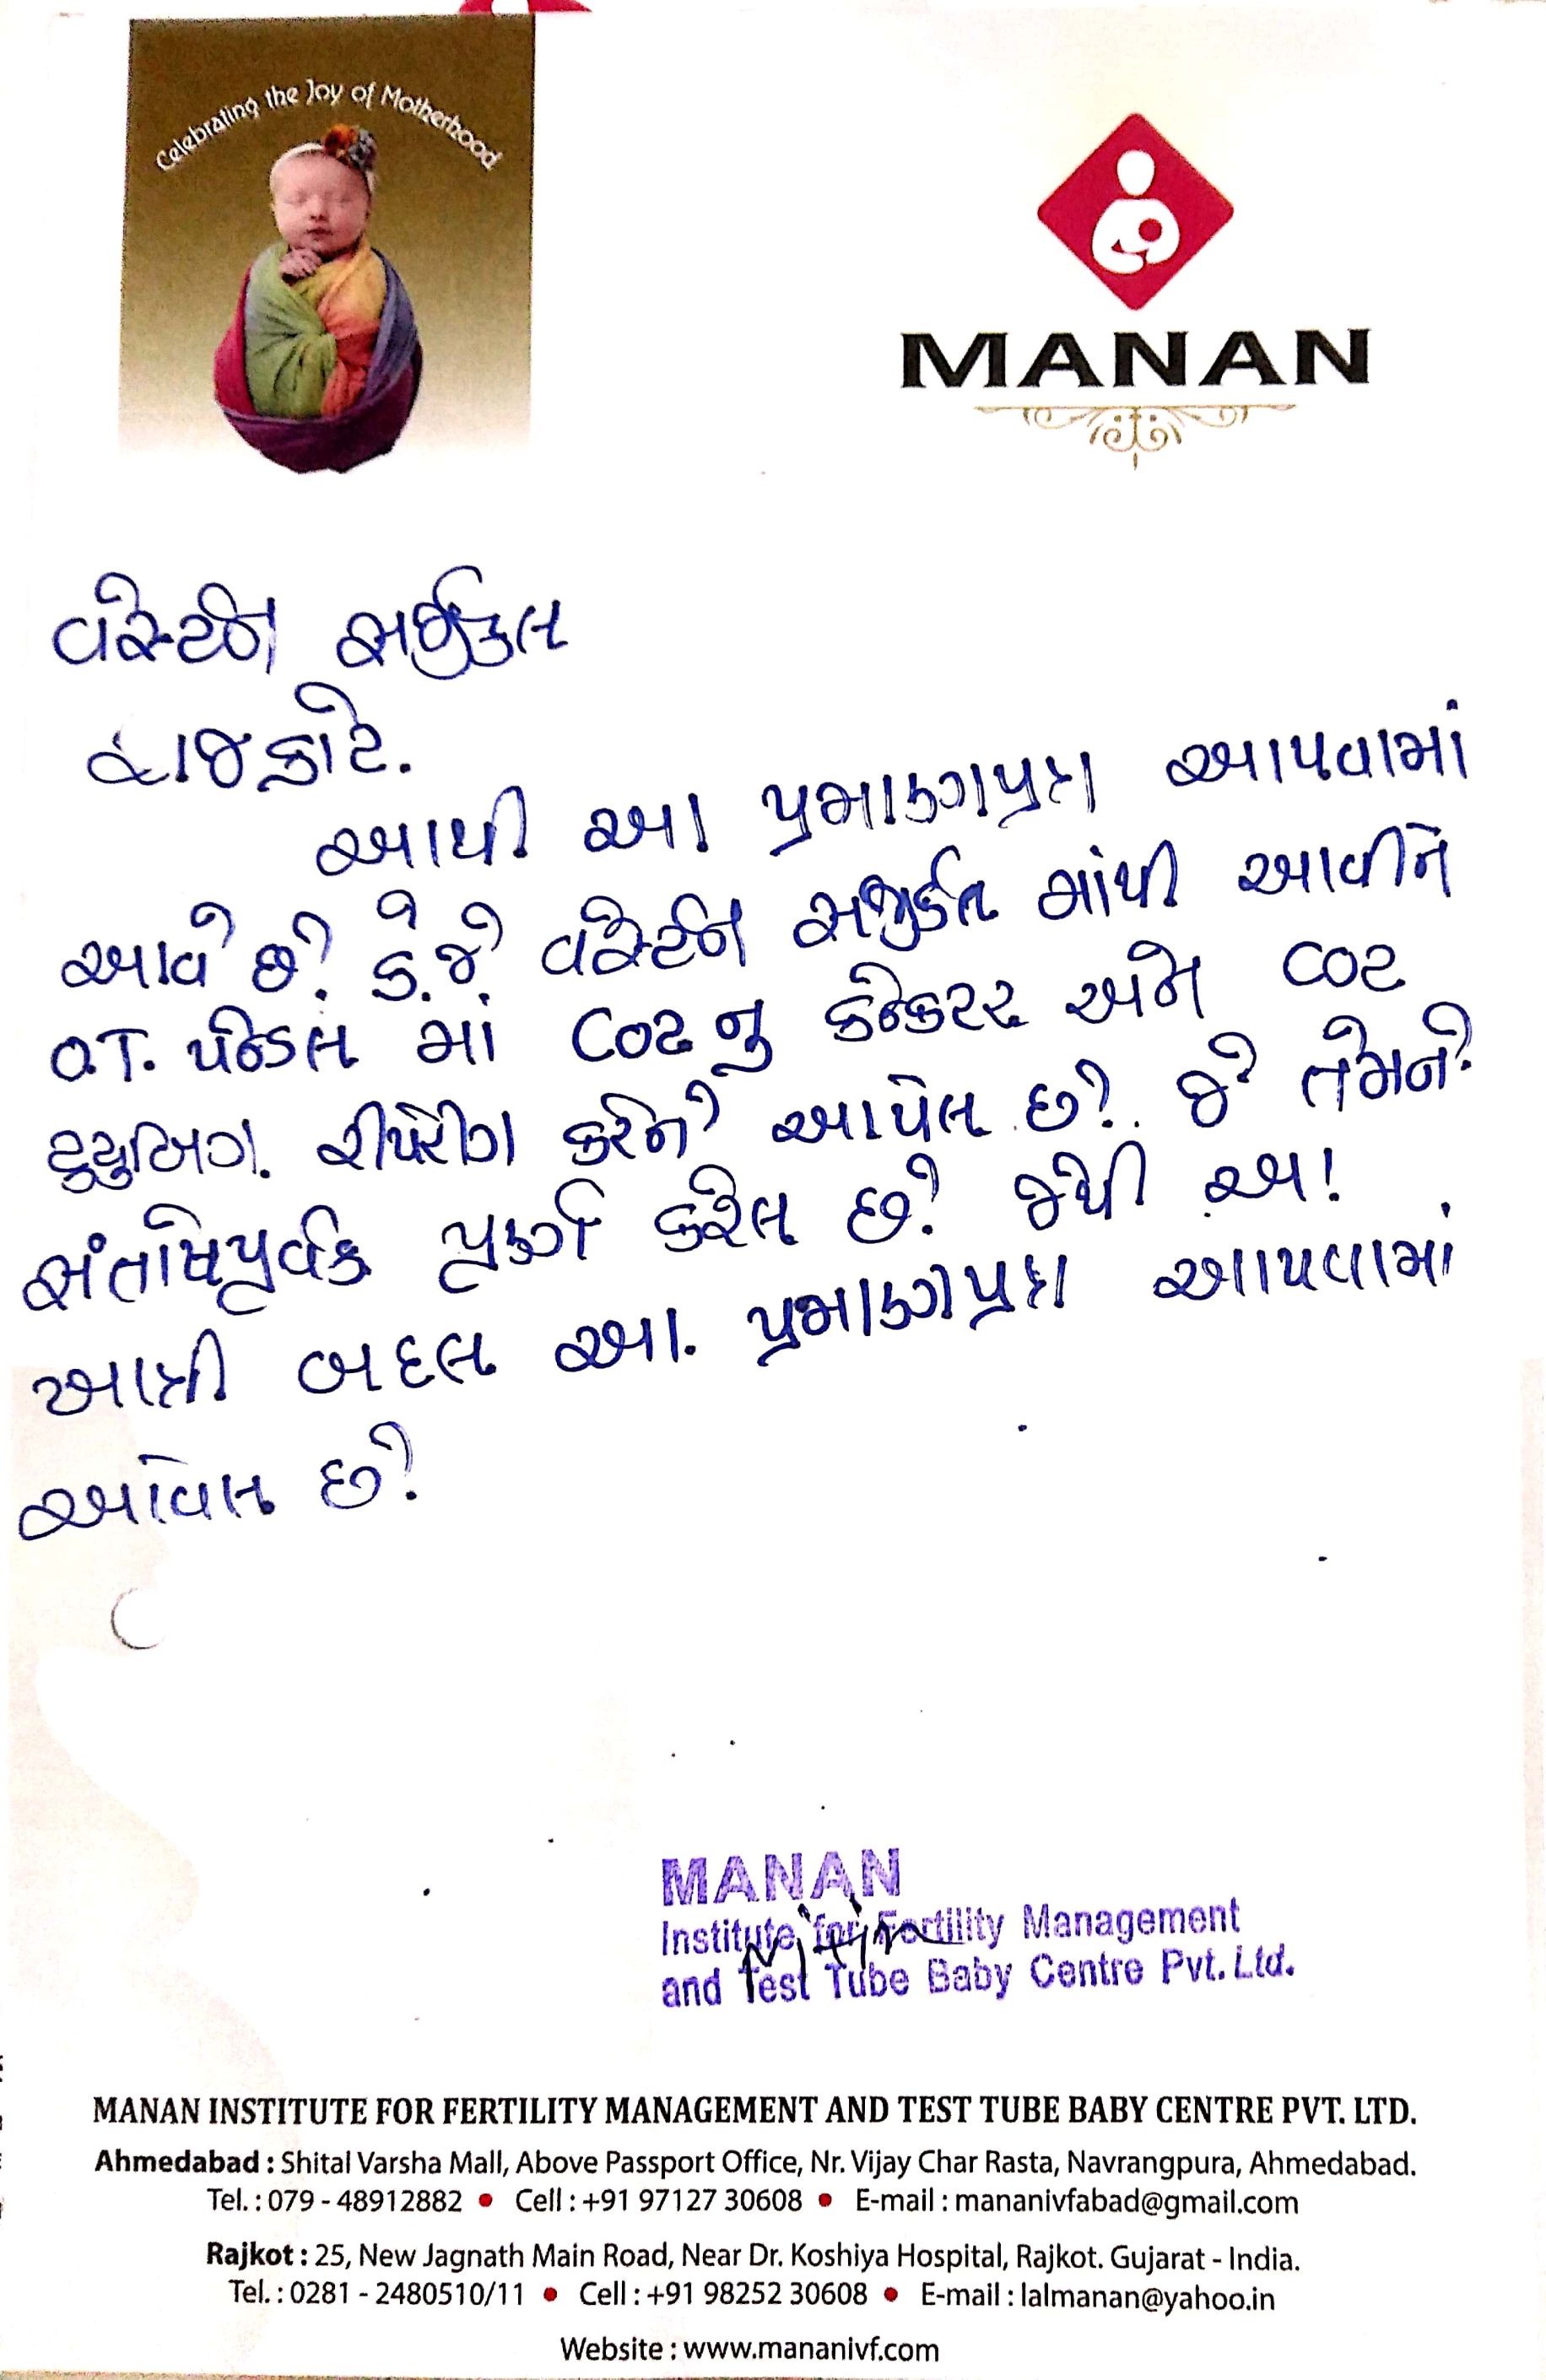 Celebrating the Joy of Motherhood
MANAN
વેસ્ટર્ન સર્જીકલ
રાજકોટ.
આથી આ પ્રમાણપત્ર આપવામાં
આવે છે. કે.જે. વેસ્ટર્ન સર્જીકલ માંથી આવીને
O.T. પેન્ડલ માં CO2 નુ કનેકટર અને CO2
ટ્યુબિંગ. રીપેરીંગ કરીને આપેલ છે. જે તેમને
સંતોષપૂર્વક પૂર્ણ કરેલ છે. જેથી આ
ખાત્રી બદલ આ. પ્રમાણપત્ર આપવામાં
આવેલ છે.
MANAN
Institute for Fertility Management
and Test Tube Baby Centre Pvt. Ltd.
MANAN INSTITUTE FOR FERTILITY MANAGEMENT AND TEST TUBE BABY CENTRE PVT. LTD.
Ahmedabad : Shital Varsha Mall, Above Passport Office, Nr. Vijay Char Rasta, Navrangpura, Ahmedabad.
Tel. : 079 - 48912882 • Cell : +91 97127 30608 • E-mail : mananivfabad@gmail.com
Rajkot : 25, New Jagnath Main Road, Near Dr. Koshiya Hospital, Rajkot. Gujarat - India.
Tel. : 0281 - 2480510/11 • Cell : +91 98252 30608 • E-mail : lalmanan@yahoo.in
Website : www.mananivf.com